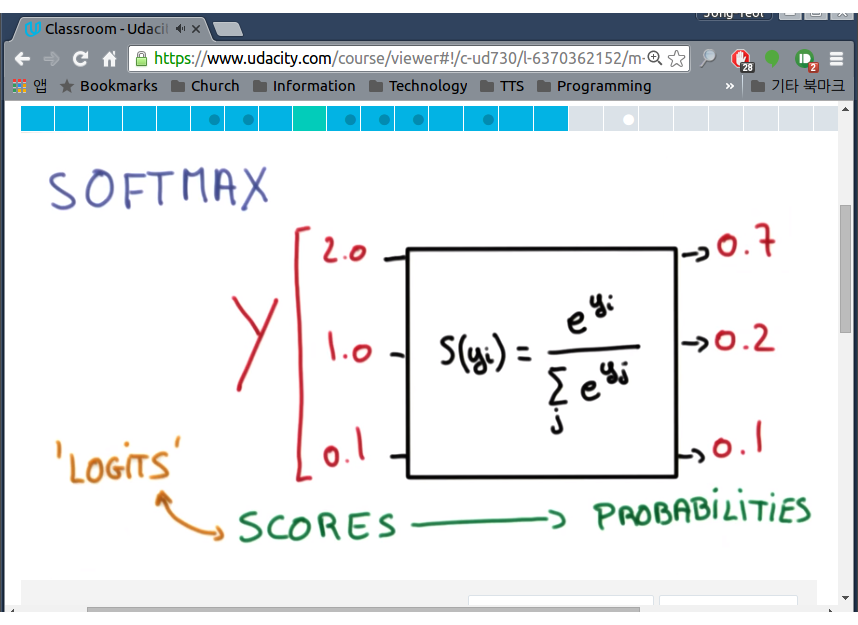 Jong Yeol
Classroom - Udaci
https://www.udacity.com/course/viewer#!/c-ud730/l-6370362152/m-
28
2
앱 Bookmarks Church Information Technology TTS Programming » 기타 북마크
SOFTMAX
Y
2.0
1.0
0.1
S(yi) = e^yi / Σj e^yj
0.7
0.2
0.1
'LOGITS'
SCORES → PROBABILITIES